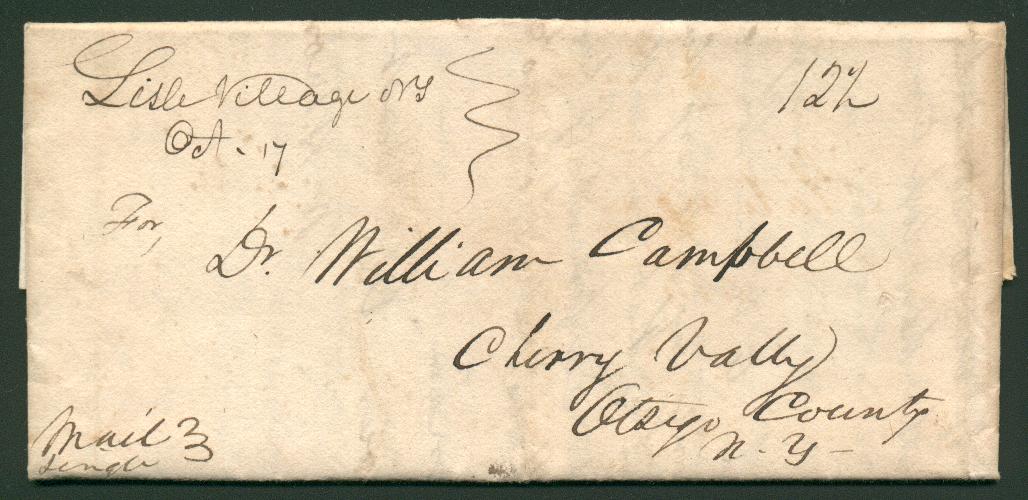 Lisle Village NY
Oct. 17
12½
For,
Dr. William Campbell
Cherry Vally
Otsego County
N. Y -
Mail
single